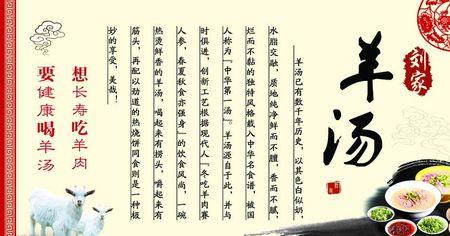 刘家
羊汤
羊汤已有数千年历史，以其色白似奶，
水脂交融，质地纯净鲜而不膻，香而不腻，
烂而不黏的独特风格载入中华名食谱，被国
人称为“中华第一汤”。羊汤源自于此，并与
时俱进，创新工艺根据现代人“冬吃羊肉赛
人参，春夏秋食亦强身”的饮食风尚，一碗
热烫鲜香的羊汤，喝起来有捞头，嚼起来有
筋头，再配以劲道的热烧饼同食则是一种极
妙的享受，美哉！
想长寿吃羊肉
要健康喝羊汤